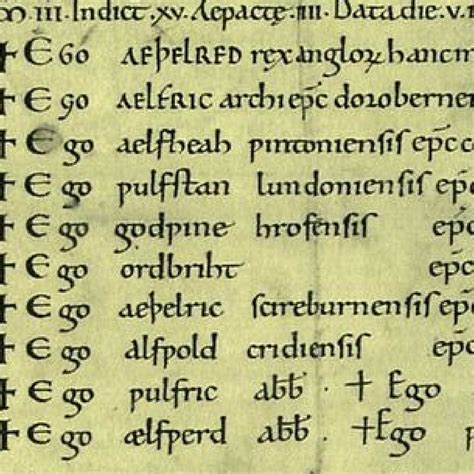 .III. Indict .xv. Aepactę .IIII. Data die .v.
+ EGO AEÞELRED rex angloꝝ hanc
+ EGO AELFRIC archiep̄c doroberne
+ Ego aelfheah ƿintoniensis ep̄c
+ Ego ƿulfstan lundoniensis ep̄c
+ Ego godƿine hrofensis ep̄c
+ Ego ordbriht ep̄c
+ Ego aeþelric scireburnensis ep̄c
+ Ego alfƿold cridiensis ep̄c
+ Ego ƿulfric abb̄ . + Ego
+ Ego ælfƿerd abb̄ . + Ego